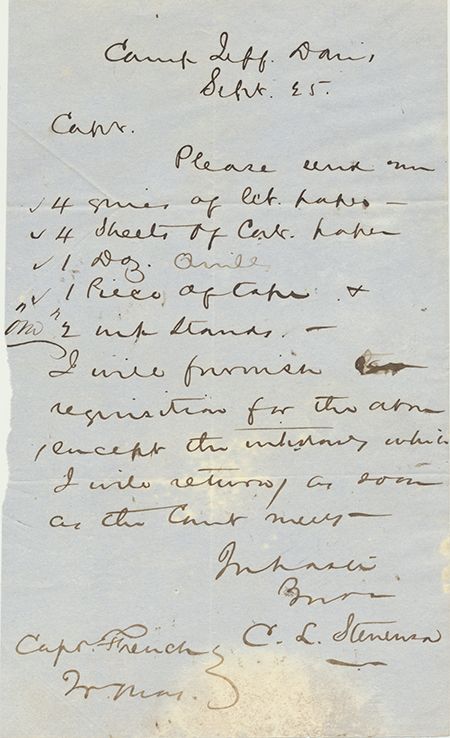 Camp Jeff. Davis
Sept. 25.
Capt.
Please send me
✓ 4 quires of let. paper —
✓ 4 Sheets of Cart. paper
✓ 1 Doz. Quills
✓ 1 Piece of tape &
" 2 ink stands. —
I will furnish
requisition for the above
(except the inkstands which
I will return) as soon
as the Court meets —
In haste
C. L. Stevenson
Capt. French